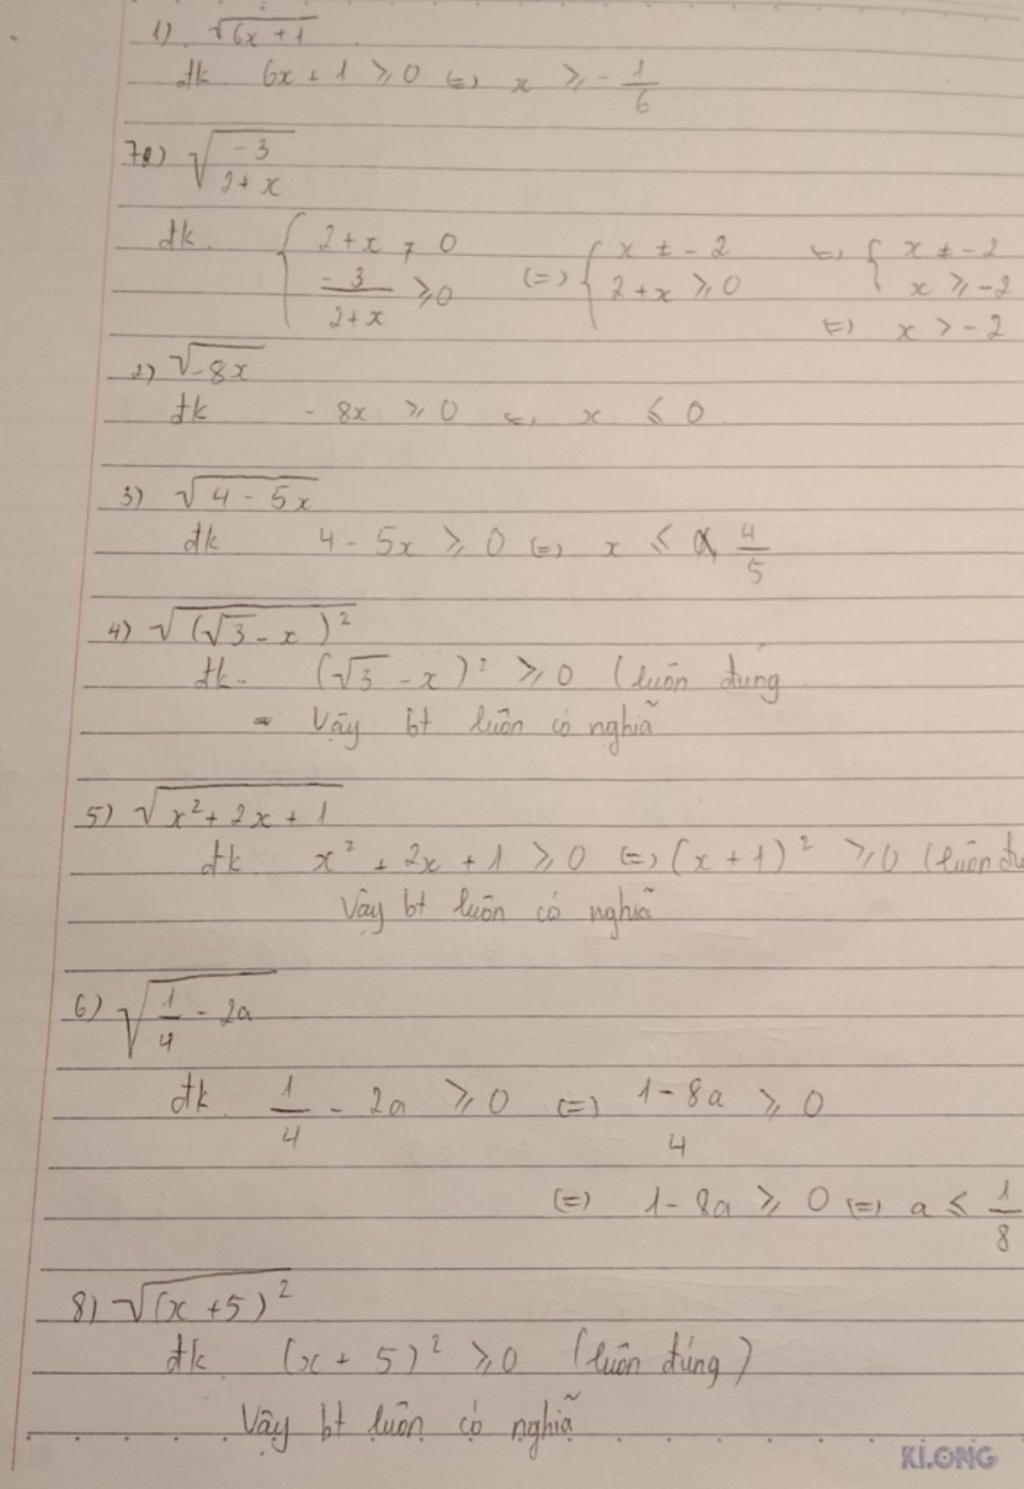 1) √(6x + 1)
đk 6x + 1 ≥ 0 (=) x ≥ - 1/6
7) √(-3/(2 + x))
đk { 2 + x ≠ 0 ; -3/(2+x) ≥ 0 (=) { x ≠ -2 ; 2 + x ≥ 0 (=) { x ≠ -2 ; x ≥ -2
(=) x > -2
2) √(-8x)
đk - 8x ≥ 0 (=) x ≤ 0
3) √(4 - 5x)
đk 4 - 5x ≥ 0 (=) x ≤ 4/5
4) √((√3 - x)²)
đk. (√3 - x)² ≥ 0 (luôn đúng
- Vậy bt luôn có nghĩã
5) √(x² + 2x + 1)
đk x² + 2x + 1 ≥ 0 (=) (x + 1)² ≥ 0 (luôn đú
Vậy bt luôn có nghĩã
6) √(1/4 - 2a)
đk 1/4 - 2a ≥ 0 (=) (1 - 8a)/4 ≥ 0
(=) 1 - 8a ≥ 0 (=) a ≤ 1/8
8) √((x + 5)²)
đk (x + 5)² ≥ 0 (luôn đúng)
Vậy bt luôn có nghĩã
KLONG